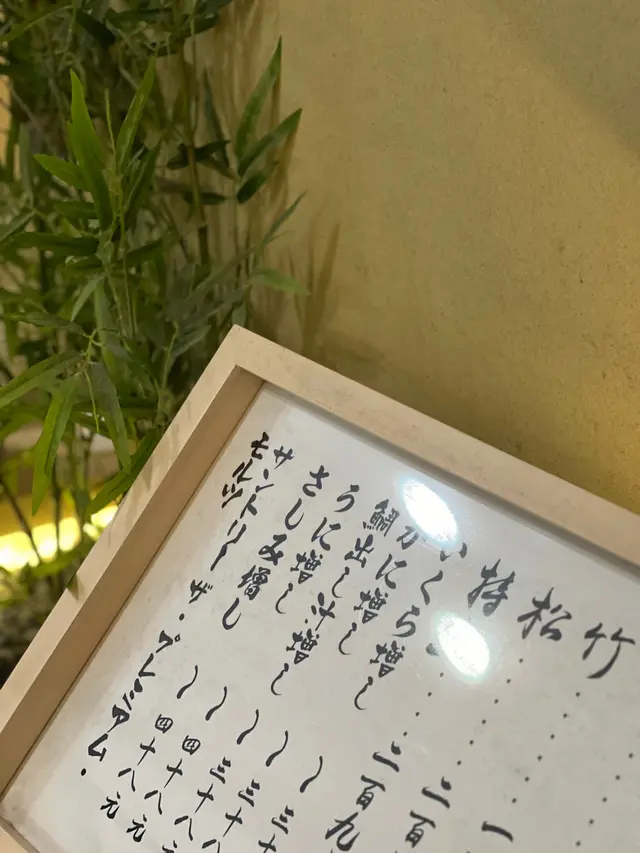 竹・・・・・一
松・・・・・二百
特・・・・・三百九
いくら増し 〜 三十
かに増し 〜 三十
鯛出し汁増し 〜 三十八
うに増し 〜 四十八元
さしみ増し 〜 四十八元
サントリー ザ・プレミアム・
モルツ